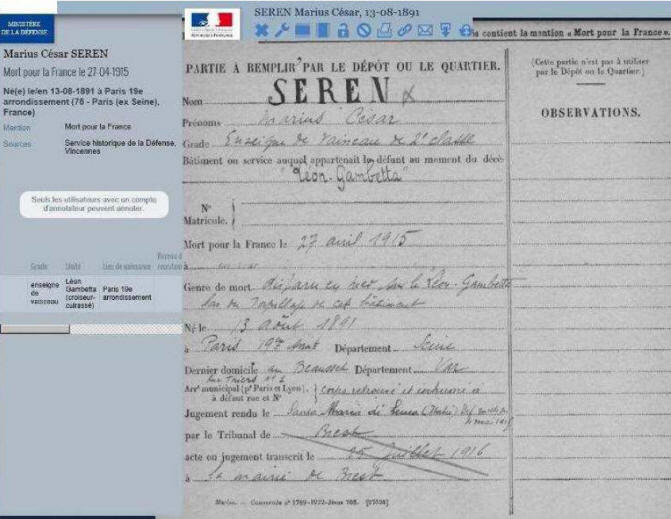 MINISTÈRE
DE LA DÉFENSE
Marius César SEREN
Mort pour la France le 27-04-1915
Né(e) le/en 13-08-1891 à Paris 19e
arrondissement (76 - Paris (ex Seine),
France)
Mention Mort pour la France
Sources Service historique de la Défense,
Vincennes
Seuls les utilisateurs avec un compte
d'annotateur peuvent annoter.
Grade Unité Lieu de naissance
enseigne de vaisseau
Léon Gambetta (croiseur-cuirassé)
Paris 19e arrondissement
SEREN Marius César, 13-08-1891
contient la mention « Mort pour la France ».
PARTIE À REMPLIR PAR LE DÉPÔT OU LE QUARTIER.
Nom SEREN
Prénoms Marius César
Grade Enseigne de Vaisseau de 2e classe
Bâtiment ou service auquel appartenait le défunt au moment du décès
"Léon-Gambetta"
N°
Matricule.
Mort pour la France le 27 avril 1915
à en mer
Genre de mort disparu en mer sur le Léon-Gambetta
lors du torpillage de cet bâtiment
Né le 13 août 1891
à Paris 19e Arrt Département Seine
Dernier domicile au Beausset Département Var
rue Thiers N° 2
Arrt municipal (pr Paris et Lyon).
à défaut rue et N°
corps retrouvé et inhumé à
Jugement rendu le Santa Maria di Leuca (Italie)
par le Tribunal de Brest
acte ou jugement transcrit le 25 juillet 1916
à la mairie de Brest
(Cette partie n'est pas à utiliser
par le Dépôt ou le Quartier.)
OBSERVATIONS.